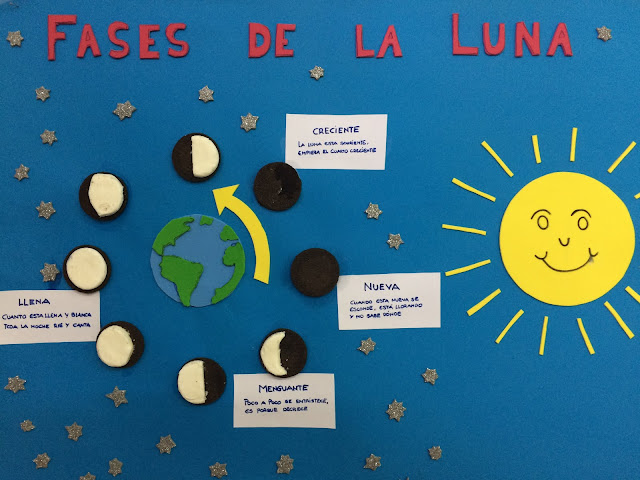 FASES DE LA LUNA
CRECIENTE
LA LUNA ESTA SONRIENTE,
EMPIEZA EL CUARTO CRECIENTE
NUEVA
CUANDO ESTA NUEVA SE
ESCONDE, ESTÁ LLORANDO
Y NO SABE DÓNDE
LLENA
CUANTO ESTA LLENA Y BLANCA
TODA LA NOCHE RIE Y CANTA
MENGUANTE
POCO A POCO SE ENTRISTECE,
ES PORQUE DECRECE